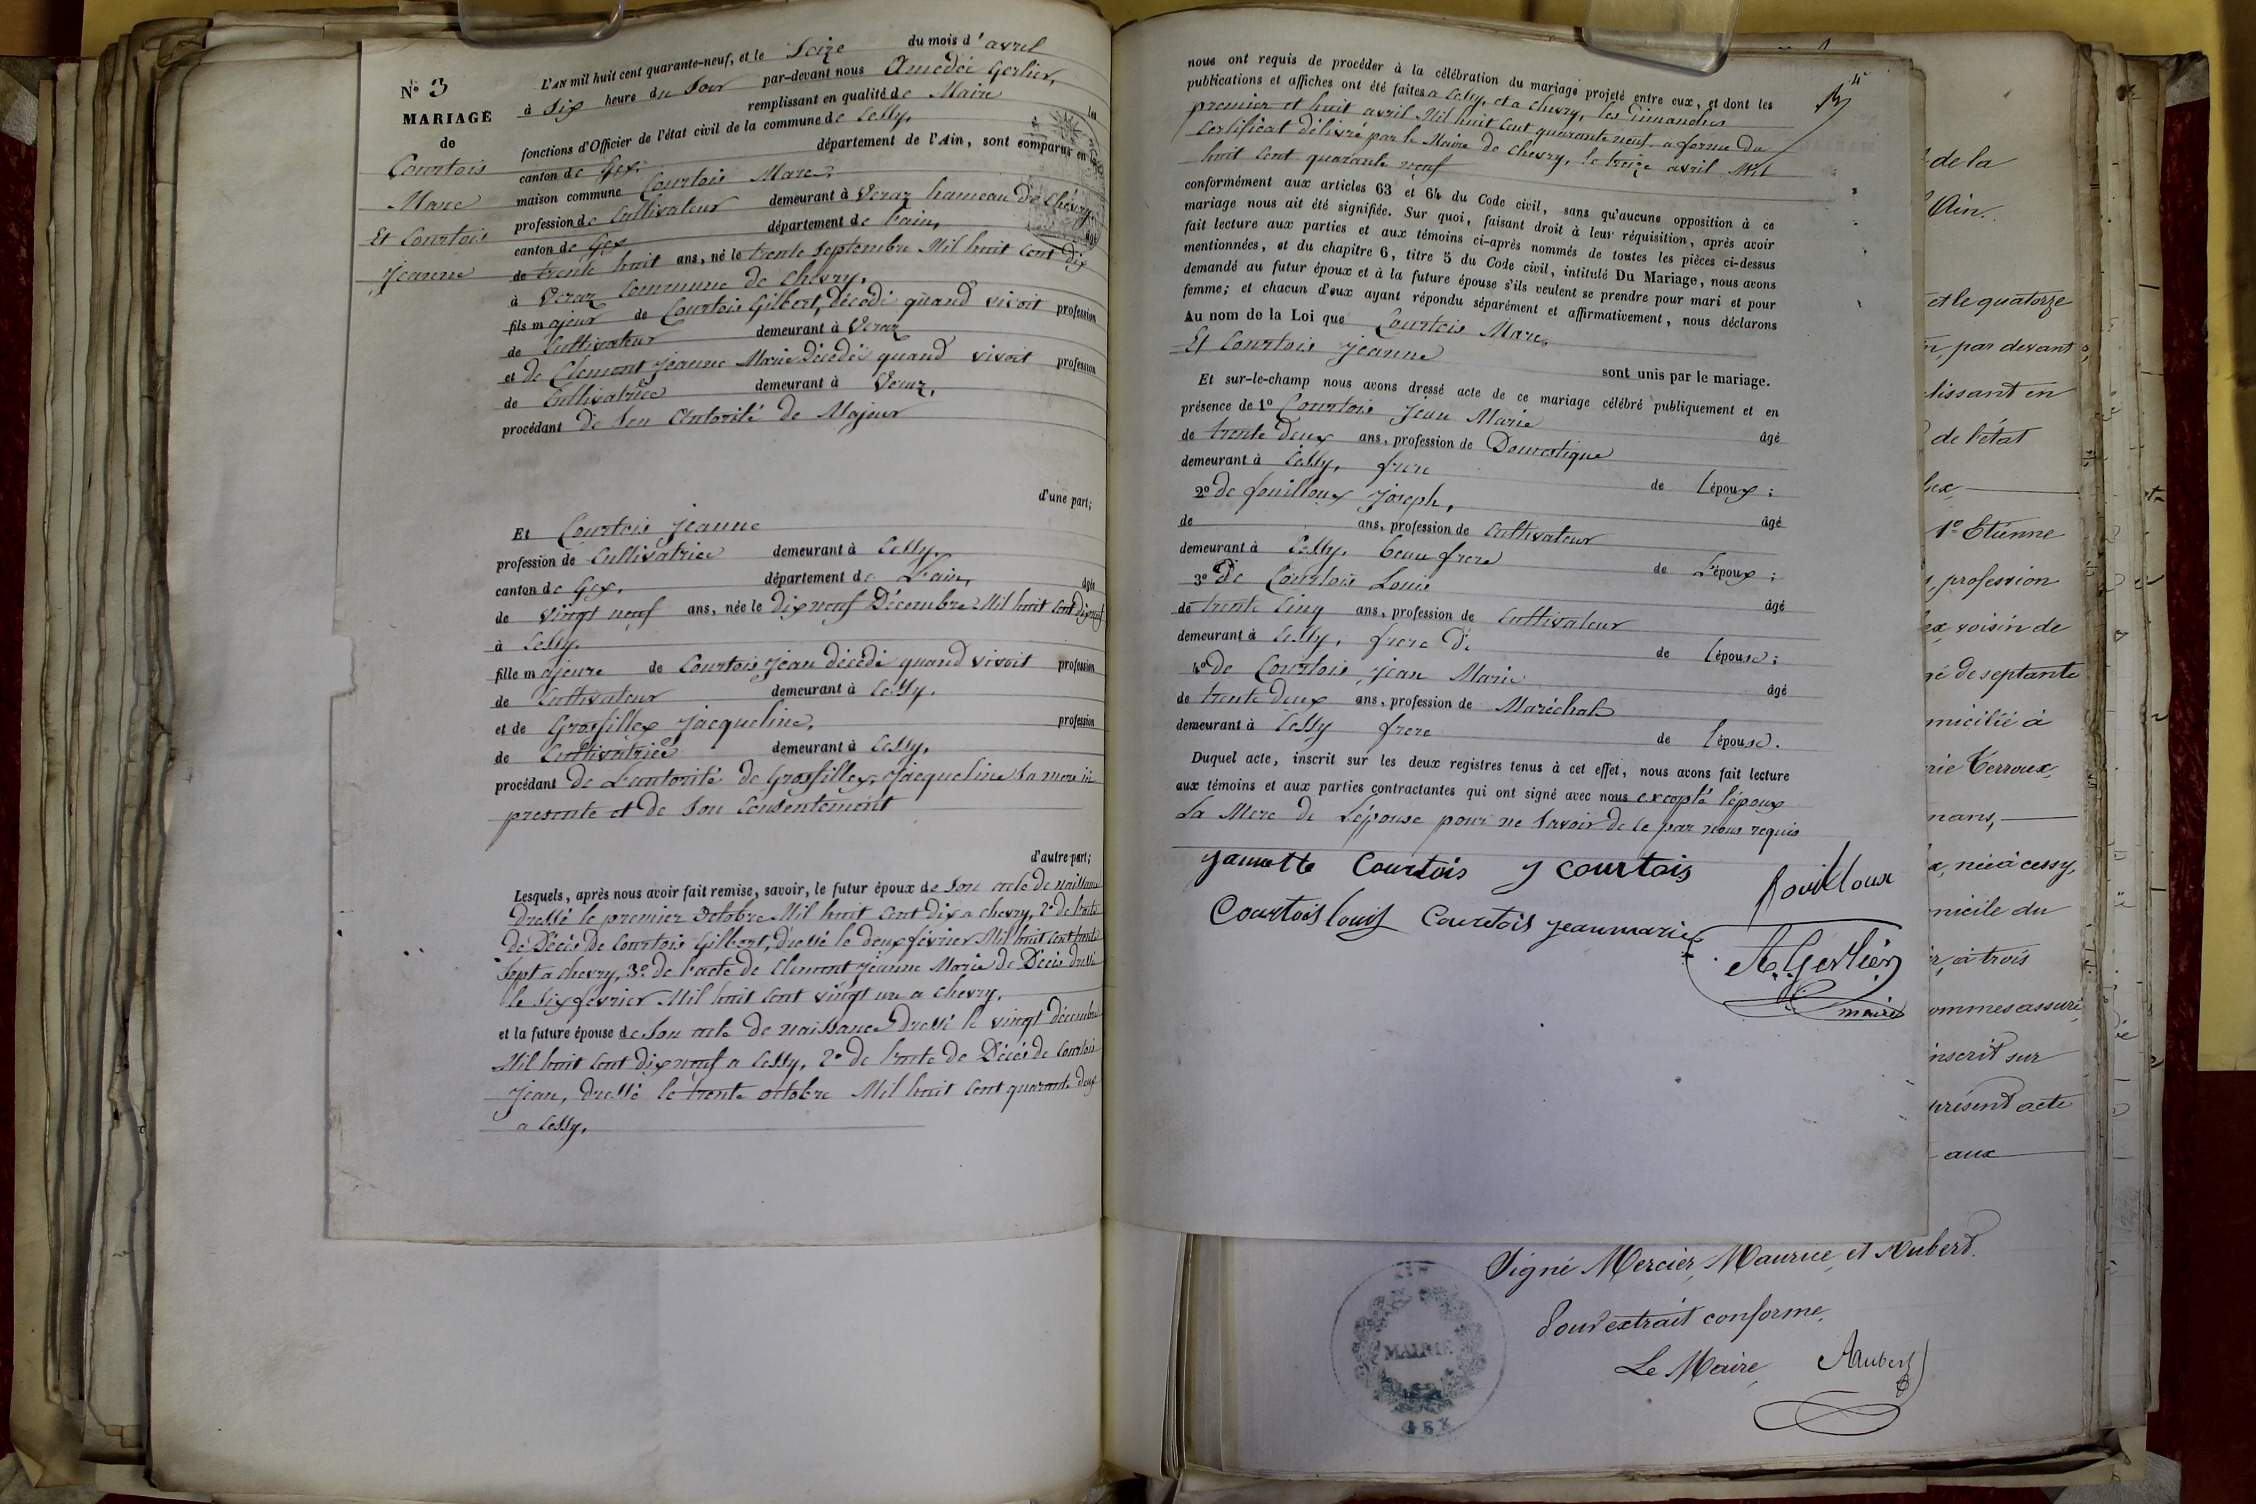 N° 3
MARIAGE
de
Courtois
Marc
Et Courtois
Jeanne
L'AN mil huit cent quarante-neuf, et le Seize du mois d'avril
à Six heure du Soir par-devant nous Amédée Gerlier,
remplissant en qualité de Maire les
fonctions d'Officier de l'état civil de la commune de Cessy,
canton de Gex. département de l'Ain, sont comparus en
maison commune Courtois Marc,
profession de Cultivateur demeurant à Veraz hameau de Chévry,
canton de Gex département de l'ain, âgé
de trente huit ans, né le trente Septembre Mil huit Cent dix
à Veraz Commune de Chevry,
fils majeur de Courtois Gilbert, Décédé quand vivoit profession
de Cultivateur demeurant à Veraz
et de Clement Jeanne Marie Décédée quand vivoit profession
de Cultivatrice demeurant à Veraz,
procédant de Son Autorité de Majeur
d'une part;
Et Courtois Jeanne
profession de Cultivatrice demeurant à Cessy,
canton de Gex, département de L'ain, âgée
de vingt neuf ans, née le dix neuf Décembre Mil huit Cent dix neuf
à Cessy.
fille majeure de Courtois Jean décédé quand vivoit profession
de Cultivateur demeurant à Cessy.
et de Grosfillex Jacqueline, profession
de Cultivatrice demeurant à Cessy,
procédant de L'autorité de Grosfillex Jacqueline Sa mere ici
presente et de Son Consentement
d'autre part;
Lesquels, après nous avoir fait remise, savoir, le futur époux de Son acte de naissance
Dressé le premier Octobre Mil huit Cent dix a chevry, 2° de l'acte
de Décès de Courtois Gilbert, Dressé le deux février Mil huit Cent trente
Sept a chevry, 3° de l'acte de Clement Jeanne Marie de Décès dressé
le Six fevrier Mil huit Cent vingt un a chevry.
et la future épouse de Son acte de naissance Dressé le vingt décembre
Mil huit Cent dix neuf a Cessy, 2° de l'acte de Décés de Courtois
Jean, Dressé le trente octobre Mil huit Cent quarante deux
a Cessy,
nous ont requis de procéder à la célébration du mariage projeté entre eux, et dont les
publications et affiches ont été faites a Cessy, et a chevry, les dimanches
premier et huit avril Mil huit Cent quarante neuf a forme du
Certificat délivré par le Maire de chevry, le treize avril Mil
huit Cent quarante neuf
conformément aux articles 63 et 64 du Code civil, sans qu'aucune opposition à ce
mariage nous ait été signifiée. Sur quoi, faisant droit à leur réquisition, après avoir
fait lecture aux parties et aux témoins ci-après nommés de toutes les pièces ci-dessus
mentionnées, et du chapitre 6, titre 5 du Code civil, intitulé Du Mariage, nous avons
demandé au futur époux et à la future épouse s'ils veulent se prendre pour mari et pour
femme; et chacun d'eux ayant répondu séparément et affirmativement, nous déclarons
Au nom de la Loi que Courtois Marc,
Et Courtois Jeanne
sont unis par le mariage.
Et sur-le-champ nous avons dressé acte de ce mariage célébré publiquement et en
présence de 1° Courtois Jean Marie
âgé
de trente deux ans, profession de Domestique
demeurant à Cessy, frere de l'époux;
2° de fouilloux Joseph,
âgé
de ans, profession de Cultivateur
demeurant à Cessy, beau frere de L'époux;
3° de Courtois Louis
âgé
de trente Cinq ans, profession de Cultivateur
demeurant à Cessy, frere de de l'épouse;
4° de Courtois Jean Marie
âgé
de trente deux ans, profession de Maréchal
demeurant à Cessy frere de l'épouse.
Duquel acte, inscrit sur les deux registres tenus à cet effet, nous avons fait lecture
aux témoins et aux parties contractantes qui ont signé avec nous excepté l'époux
La Mere de L'épouse pour ne Savoir de ce par nous requis
Courtois J courtois
fouilloux
Courtois louis Courtois jeanmarie
A. Gerlier
maire
de la
Ain.
et le quatorze
par devant
lissant en
de l'état
1° Etienne
profession
voisin de
de septante
micilié à
Terroux,
née à cessy,
micile du
à trois
ommes assuré
nscrit sur
présent acte
aux
Signé Mercier, Maurice, et Aubert.
Pour extrait conforme,
Le Maire, Aubert
MAIRIE
GEX